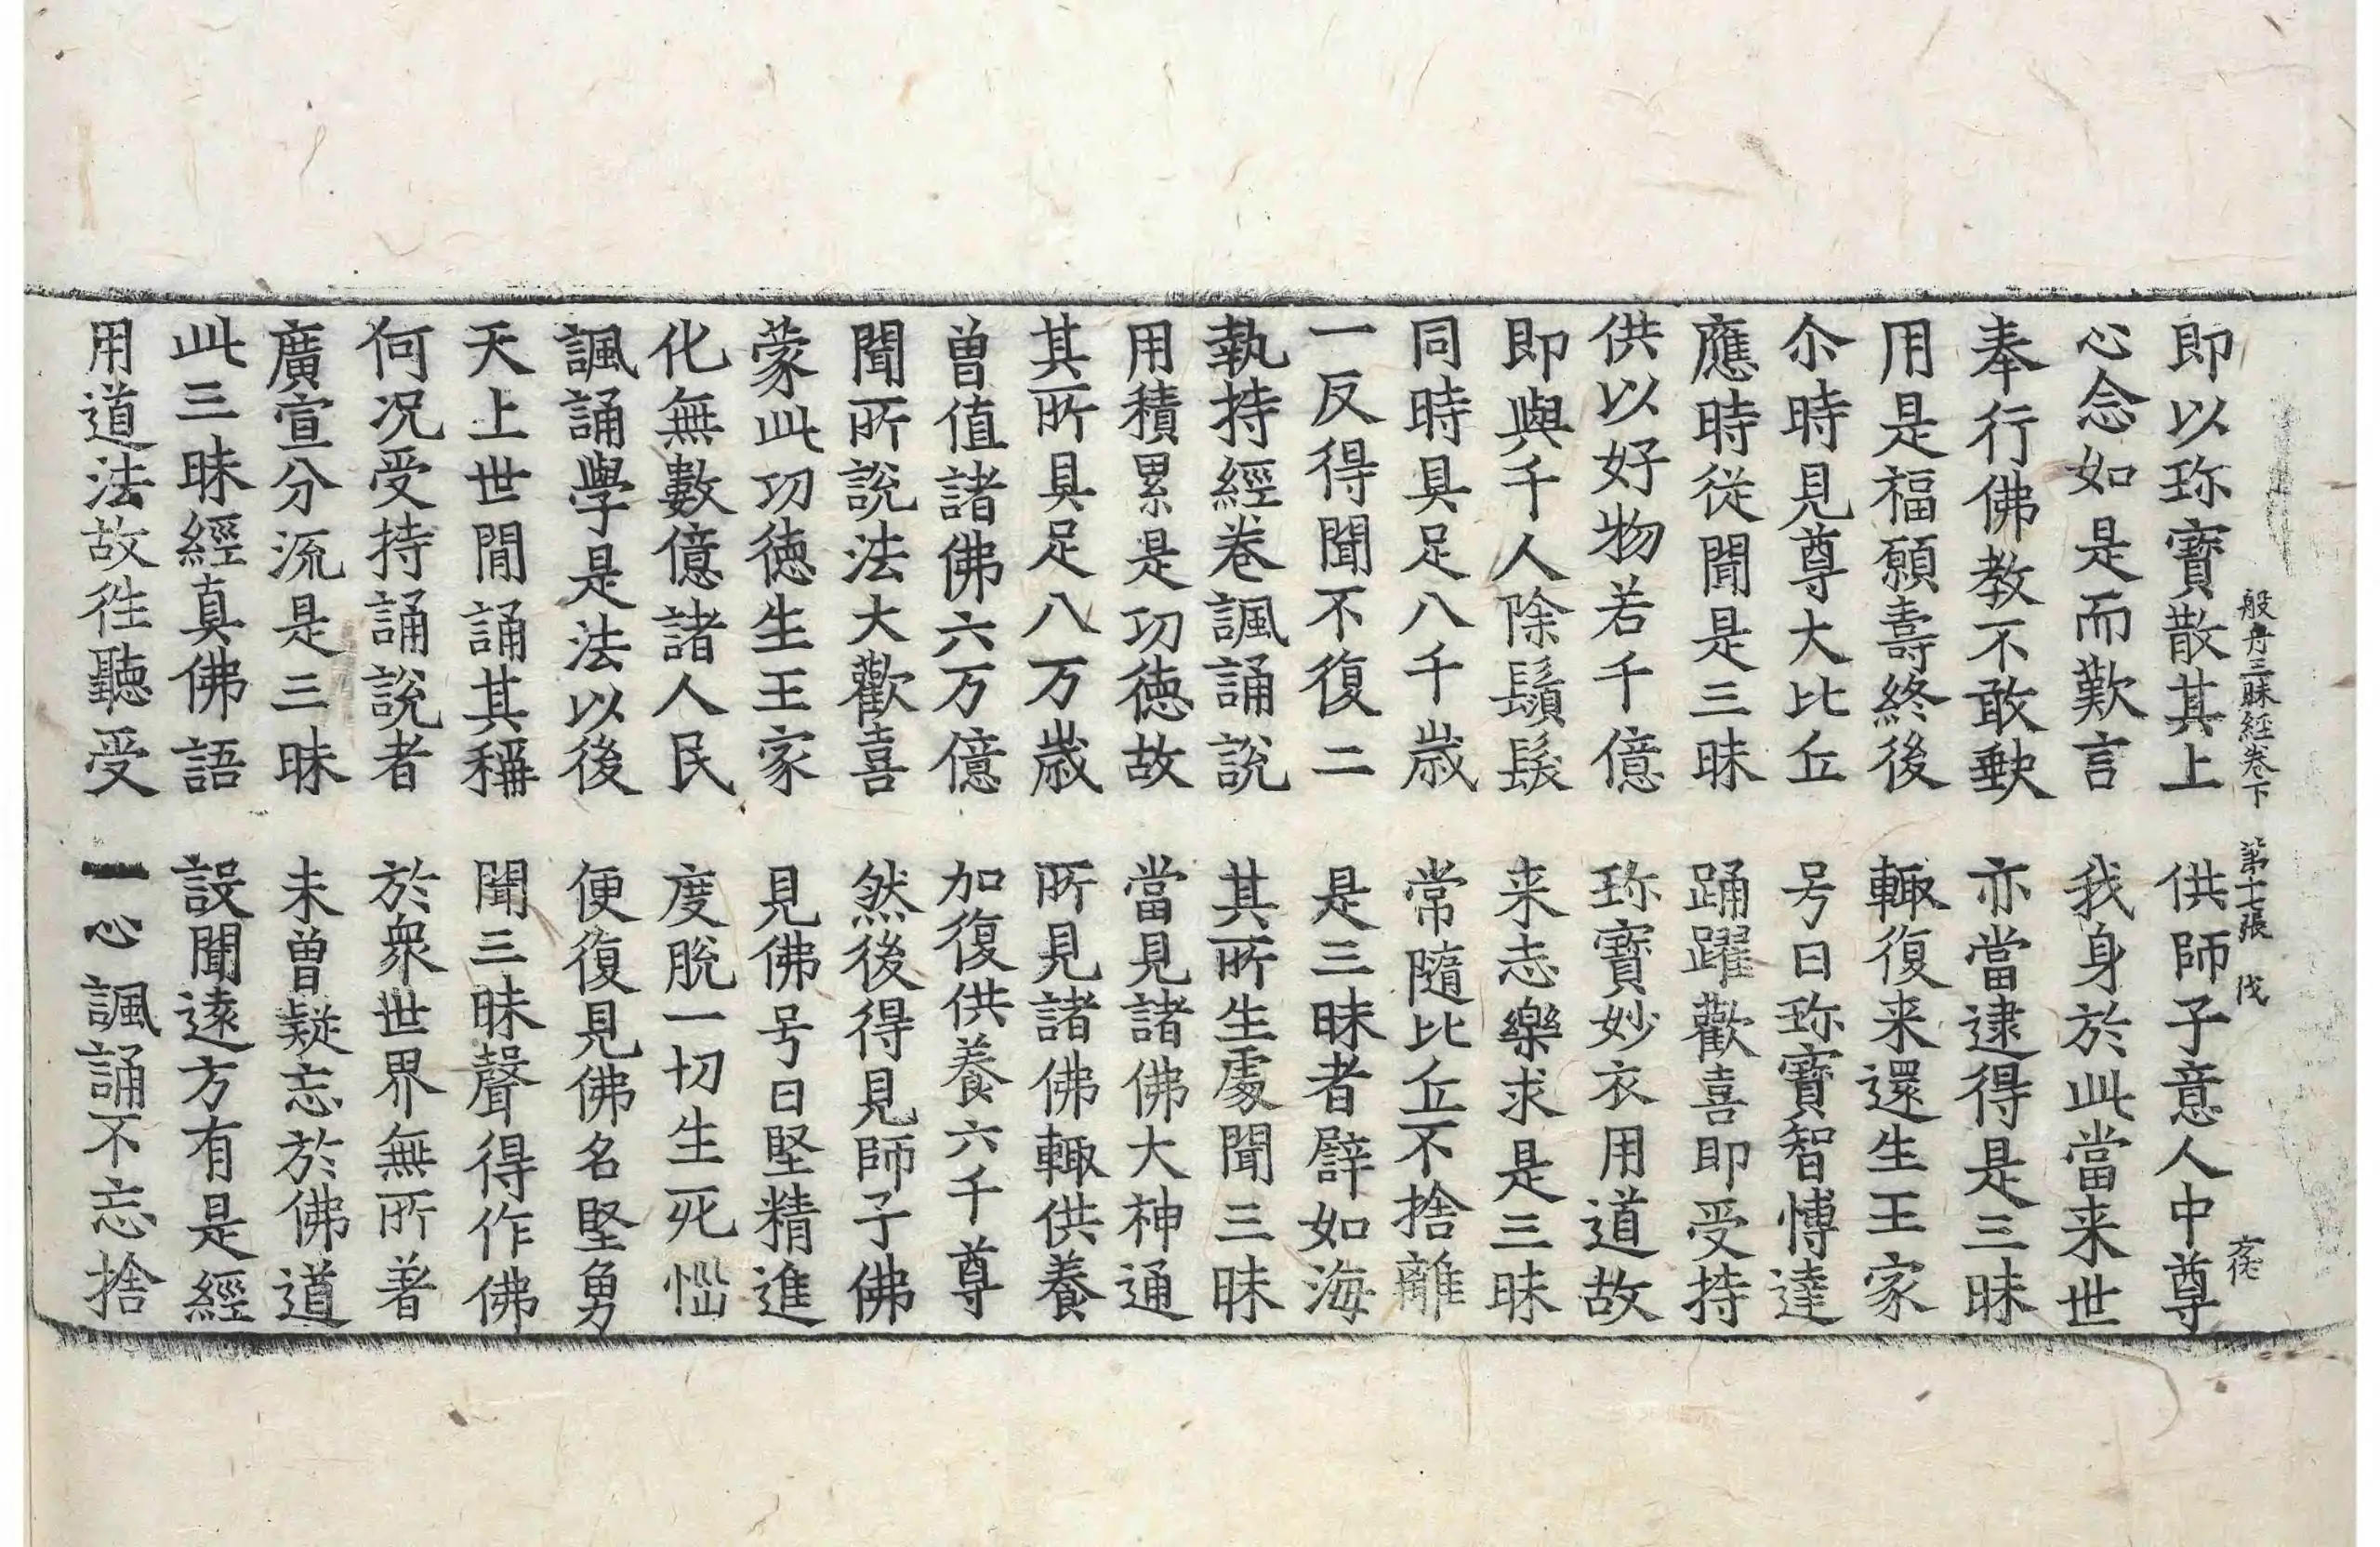 般舟三昧經卷下 第十七張 伐
即以珎寶散其上 供師子意人中尊
心念如是而歎言 我身於此當来世
奉行佛教不敢缺 亦當逮得是三昧
用是福願壽終後 輙復来還生王家
尒時見尊大比丘 号曰珎寶智愽達
應時從聞是三昧 踊躍歡喜即受持
供以好物若千億 珎寶妙衣用道故
即與千人除鬚髮 来志樂求是三昧
同時具足八千歳 常隨比丘不捨離
一反得聞不復二 是三昧者譬如海
執持經巻諷誦說 其所生處聞三昧
用積累是功徳故 當見諸佛大神通
其所具足八万歳 所見諸佛輙供養
曽值諸佛六万億 加復供養六千尊
聞所說法大歡喜 然後得見師子佛
蒙此功徳生王家 見佛号曰堅精進
化無數億諸人民 度脫一切生死惱
諷誦學是法以後 便復見佛名堅勇
天上世間誦其稱 聞三昧聲得作佛
何况受持誦說者 於衆世界無所著
廣宣分流是三昧 未曽疑忘於佛道
此三昧經真佛語 設聞逺方有是經
用道法故徃聽受 一心諷誦不忘捨